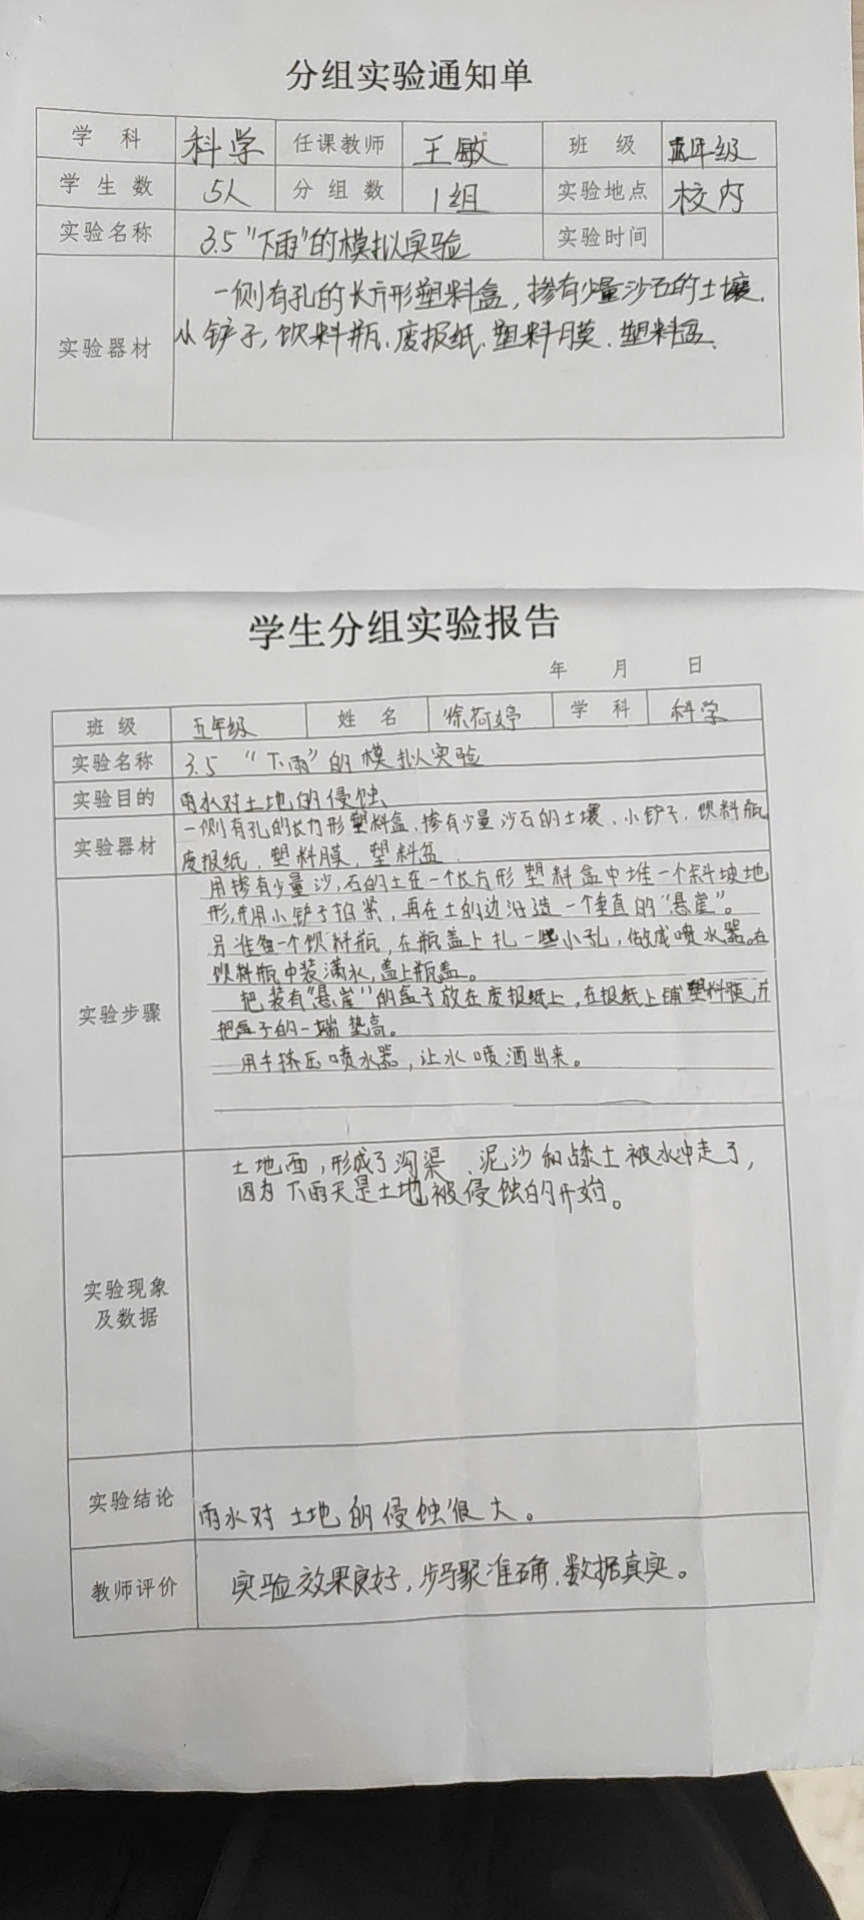 分组实验通知单
学 科 科学 任课教师 王敏 班 级 五年级
学生数 5人 分组数 1组 实验地点 校内
实验名称 3.5"下雨"的模拟实验 实验时间
一侧有孔的长方形塑料盒,掺有少量沙石的土壤.
实验器材 小铲子,饮料瓶、废报纸、塑料膜、塑料盆、
学生分组实验报告
年 月 日
班 级 五年级 姓 名 徐荷婷 学 科 科学
实验名称 3.5 "下雨"的模拟实验
实验目的 雨水对土地的侵蚀、
实验器材 一侧有孔的长方形塑料盒、掺有少量沙石的土壤、小铲子、饮料瓶
废报纸、塑料膜,塑料盆、
用掺有少量沙,石的土在一个长方形塑料盒中堆一个斜坡地
形,并用小铲子拍紧,再在土的边沿造一个垂直的"悬崖"。
另准备一个饮料瓶,在瓶盖上扎一些小孔,做成喷水器。在
饮料瓶中装满水,盖上瓶盖。
实验步骤 把装有"悬崖"的盒子放在废报纸上,在报纸上铺塑料膜,并
把盒子的一端垫高。
用手挤压喷水器,让水喷洒出来。
土地面,形成了沟渠、泥沙和土被水冲走了,
因为下雨天是土地被侵蚀的开始。
实验现象
及数据
实验结论 雨水对土地的侵蚀很大。
教师评价 实验效果良好,步骤准确、数据真实。